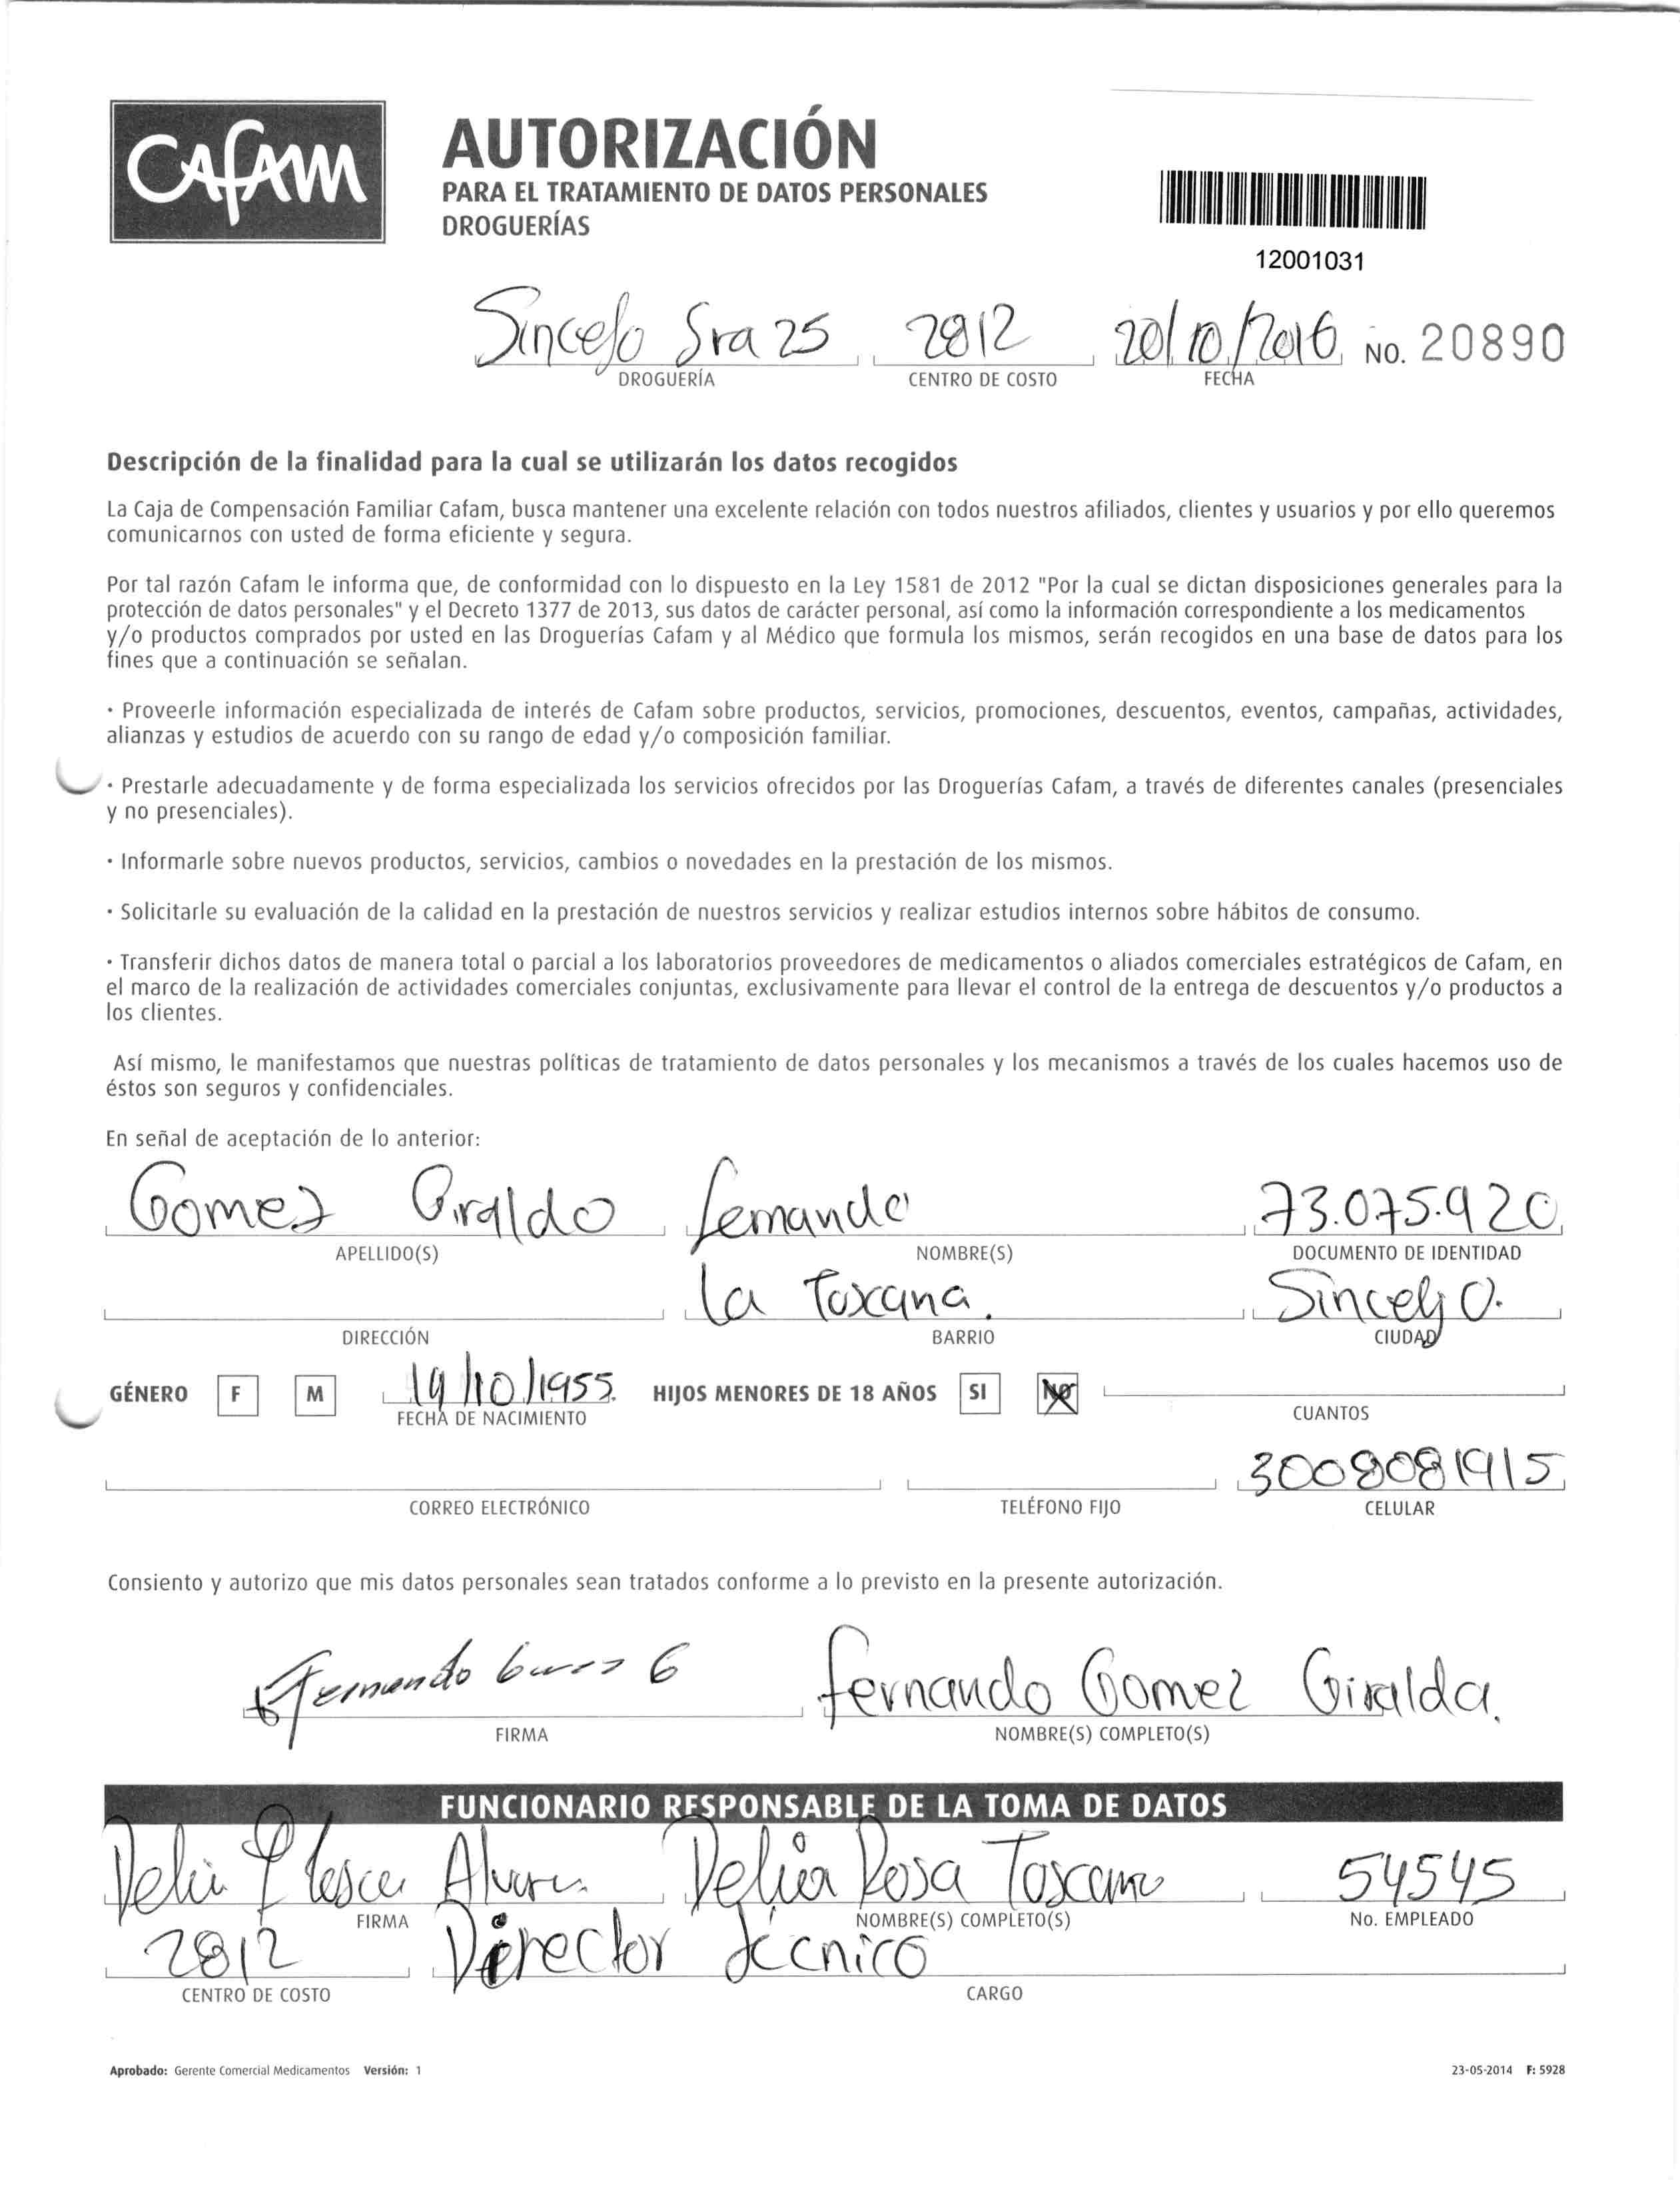 Cafam
AUTORIZACIÓN
PARA EL TRATAMIENTO DE DATOS PERSONALES
DROGUERÍAS
12001031
Sincelejo Sra 25 2812 20/10/2016 NO. 20890
DROGUERÍA CENTRO DE COSTO FECHA
Descripción de la finalidad para la cual se utilizarán los datos recogidos
La Caja de Compensación Familiar Cafam, busca mantener una excelente relación con todos nuestros afiliados, clientes y usuarios y por ello queremos
comunicarnos con usted de forma eficiente y segura.
Por tal razón Cafam le informa que, de conformidad con lo dispuesto en la Ley 1581 de 2012 "Por la cual se dictan disposiciones generales para la
protección de datos personales" y el Decreto 1377 de 2013, sus datos de carácter personal, así como la información correspondiente a los medicamentos
y/o productos comprados por usted en las Droguerías Cafam y al Médico que formula los mismos, serán recogidos en una base de datos para los
fines que a continuación se señalan.
· Proveerle información especializada de interés de Cafam sobre productos, servicios, promociones, descuentos, eventos, campañas, actividades,
alianzas y estudios de acuerdo con su rango de edad y/o composición familiar.
· Prestarle adecuadamente y de forma especializada los servicios ofrecidos por las Droguerías Cafam, a través de diferentes canales (presenciales
y no presenciales).
· Informarle sobre nuevos productos, servicios, cambios o novedades en la prestación de los mismos.
· Solicitarle su evaluación de la calidad en la prestación de nuestros servicios y realizar estudios internos sobre hábitos de consumo.
· Transferir dichos datos de manera total o parcial a los laboratorios proveedores de medicamentos o aliados comerciales estratégicos de Cafam, en
el marco de la realización de actividades comerciales conjuntas, exclusivamente para llevar el control de la entrega de descuentos y/o productos a
los clientes.
Así mismo, le manifestamos que nuestras políticas de tratamiento de datos personales y los mecanismos a través de los cuales hacemos uso de
éstos son seguros y confidenciales.
En señal de aceptación de lo anterior:
Gomez Giraldo fernando 73.075.920
APELLIDO(S) NOMBRE(S) DOCUMENTO DE IDENTIDAD
la Toxcana. Sincelejo.
DIRECCIÓN BARRIO CIUDAD
GÉNERO F M 19/10/1955. HIJOS MENORES DE 18 AÑOS SI NO
FECHA DE NACIMIENTO CUANTOS
3008081915
CORREO ELECTRÓNICO TELÉFONO FIJO CELULAR
Consiento y autorizo que mis datos personales sean tratados conforme a lo previsto en la presente autorización.
Fernando G fernando Gomez Giralda.
FIRMA NOMBRE(S) COMPLETO(S)
FUNCIONARIO RESPONSABLE DE LA TOMA DE DATOS
Delia Delia Rosa Toscano 54545
FIRMA NOMBRE(S) COMPLETO(S) No. EMPLEADO
2812 Director técnico
CENTRO DE COSTO CARGO
Aprobado: Gerente Comercial Medicamentos Versión: 1 23-05-2014 F: 5928